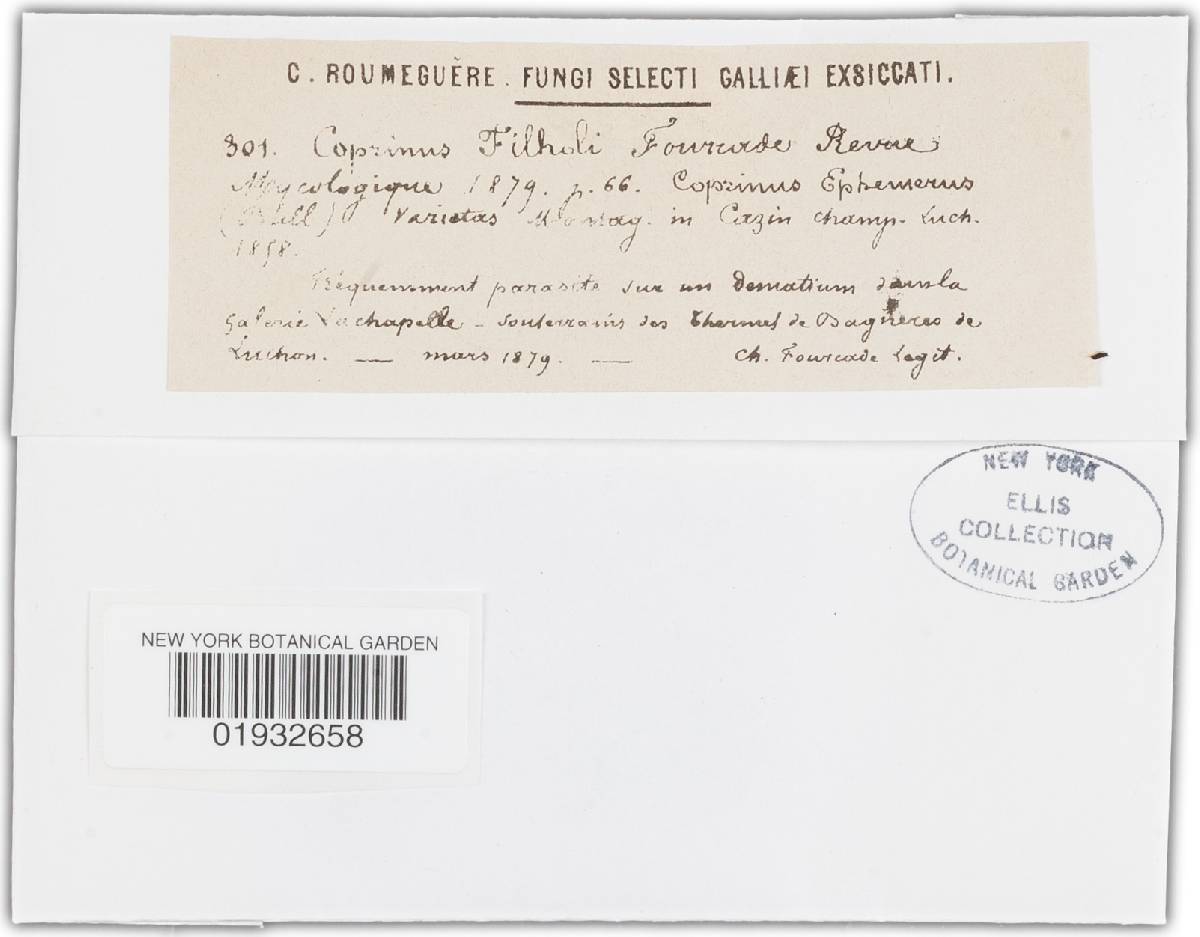 C. ROUMEGUÈRE. FUNGI SELECTI GALLIÆI EXSICCATI.
301. Coprinus Filholi Fourcade Revue
Mycologique 1879. p. 66. Coprinus Ephemerus
(Bull) Varietas Montag. in Cazin champ. Luch.
1858.
Fréquemment parasite sur un Dematium dans la
Galerie Lachapelle - souterrains des Thermes de Bagnères de
Luchon. — mars 1879. — Ch. Fourcade Legit.
NEW YORK
ELLIS
COLLECTION
BOTANICAL GARDEN
NEW YORK BOTANICAL GARDEN
01932658